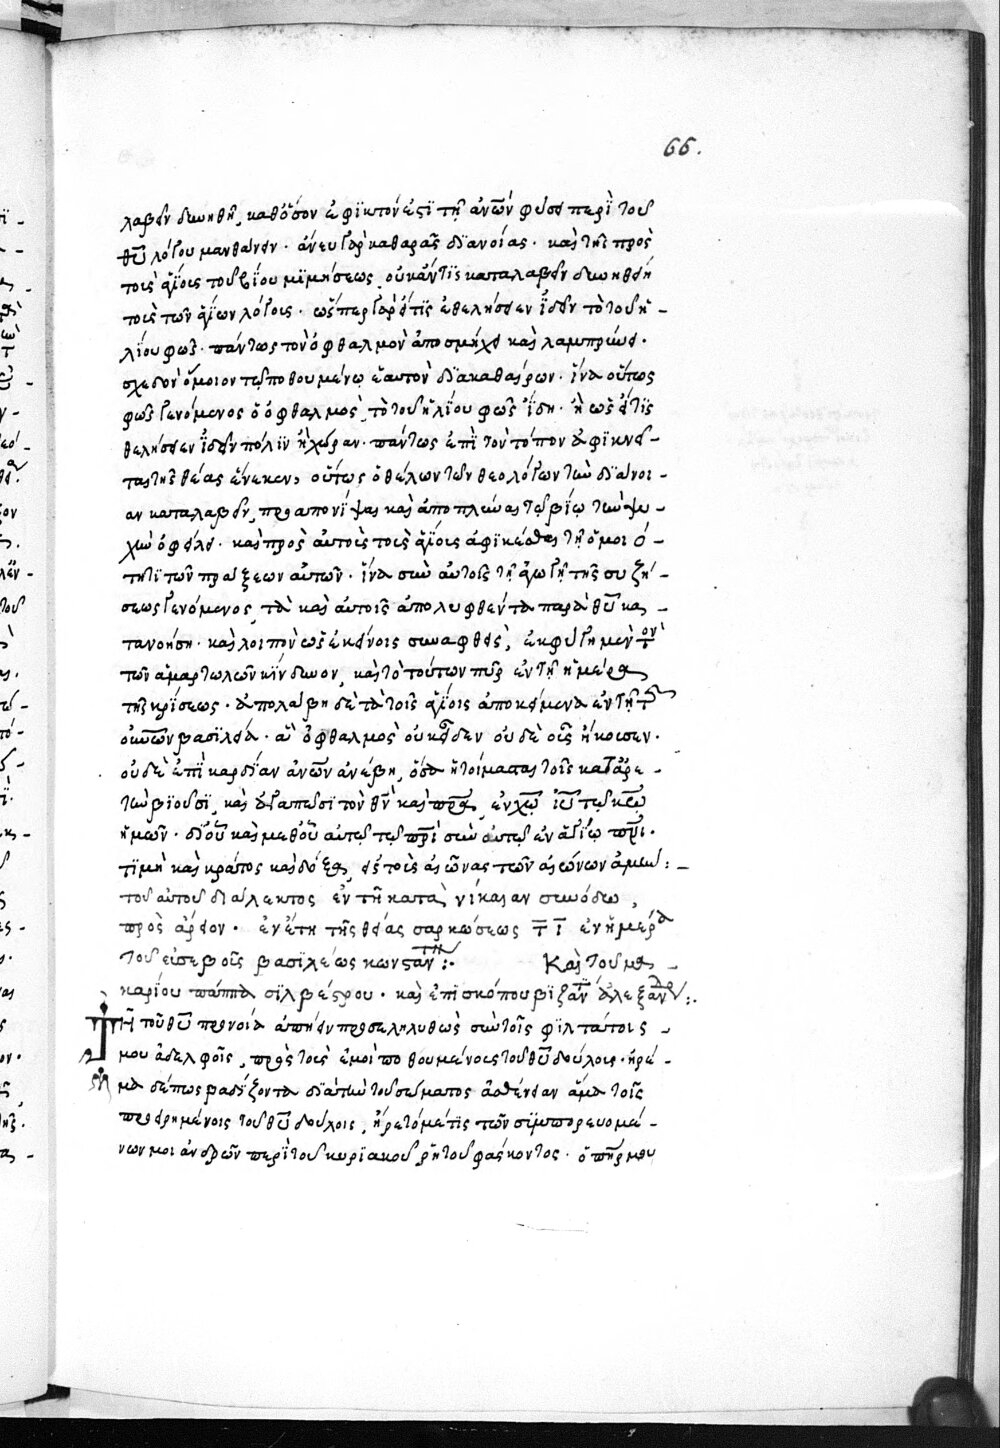 66.
λαβεῖν δυνηθῇ, καθ' ὅσον ἐφικτόν ἐστι τῇ ἀν̅ων φύσει περὶ τοῦ
θ̅υ λόγου μανθάνειν· ἄνευ γὰρ καθαρᾶς διανοίας· καὶ τῆς πρὸς
τοὺς ἁγίους τοῦ βίου μιμήσεως, οὐκ ἄν τις καταλαβεῖν δυνηθείη
τοὺς τῶν ἁγίων λόγους· ὥσπερ γὰρ εἴ τις ἐθελήσειεν ἰδεῖν τὸ τοῦ ἡ-
λίου φῶς· πάντως τὸν ὀφθαλμὸν ἀποσμήχει καὶ λαμπρύνει·
σχεδὸν ὅμοιον τῷ ποθουμένῳ ἑαυτὸν διακαθαίρων· ἵνα οὕτως
φῶς γενόμενος ὁ ὀφθαλμὸς, τὸ τοῦ ἡλίου φῶς ἴδῃ· ἢ ὡς εἴ τις
θελήσειεν ἰδεῖν πόλιν ἢ χώραν· πάντως ἐπὶ τὸν τόπον ἀφικνεῖ-
ται τῆς θέας ἕνεκεν, οὕτως ὁ θέλων τῶν θεολόγων τὴν διάνοι-
αν καταλαβεῖν, προαπονίψαι καὶ ἀποπλύναι τῷ βίῳ τὴν ψυ-
χὴν ὀφείλει· καὶ πρὸς αὐτοὺς τοὺς ἁγίους ἀφικέσθαι τῇ ὁμοιό-
τητι τῶν πράξεων αὐτῶν· ἵνα σὺν αὐτοῖς τῇ ἀγωγῇ τῆς συζή-
σεως γενόμενος, τὰ καὶ αὐτοῖς ἀποκαλυφθέντα παρὰ θ̅υ κα-
τανοήσῃ· καὶ λοιπὸν ὡς ἐκείνοις συναφθεὶς, ἐκφύγῃ μὲν τὸν
τῶν ἁμαρτωλῶν κίνδυνον, καὶ τὸ τούτων πῦρ ἐν τῇ ἡμέρᾳ
τῆς κρίσεως· ἀπολάβῃ δὲ τὰ τοῖς ἁγίοις ἀποκείμενα ἐν τῇ τῶν
ο̅υ̅νων βασιλείᾳ· ἃ ὀφθαλμὸς οὐκ εἶδεν οὐδὲ οὖς ἤκουσεν·
οὐδὲ ἐπὶ καρδίαν ἀν̅ων ἀνέβη, ὅσα ἡτοίμασται τοῖς κατ' ἀρε-
τὴν βιοῦσι, καὶ ἀγαπῶσι τὸν θ̅ν καὶ π̅ρα, ἐν χ̅ω ι̅υ τῷ κ̅ω
ἡμῶν· δι' οὗ καὶ μεθ' οὗ αὐτῷ τῷ π̅ρι σὺν αὐτῷ ἐν ἁγίῳ π̅νι·
τιμὴ καὶ κράτος καὶ δόξα, εἰς τοὺς αἰῶνας τῶν αἰώνων ἀμήν :-
τοῦ αὐτοῦ διάλεκτος ἐν τῇ κατὰ νίκαιαν συνόδῳ,
πρὸς ἄρειον· ἐν ἔτη τῆς θείας σαρκώσεως τ̅ι̅ ἐν ἡμέρα
τοῦ εὐσεβοῦς βασιλέως κωνσταν̅τη :· Καὶ τοῦ μα-
καρίου πάππα σιλβέστρου· καὶ ἐπισκόπου βιζαν̅ ἀλεξάνδρου :·
Τῇ τοῦ θ̅υ προνοίᾳ ἀπῄειν προσεληλυθὼς σὺν τοῖς φιλτάτοις
μου ἀδελφοῖς, πρὸς τοὺς ἐμοὶ ποθουμένους τοῦ θ̅υ δούλους· ἠρέ-
μα δέ πως βαδίζοντα διὰ τὴν τοῦ σώματος ἀσθένειαν ἅμα τοῖς
προειρημένοις τοῦ θ̅υ δούλοις, ἤρετό με τὶς τῶν συμπορευομέ-
νων μοι ἀνδρῶν περὶ τοῦ κυριακοῦ ῥητοῦ φάσκοντος· ὁ π̅ηρ μου